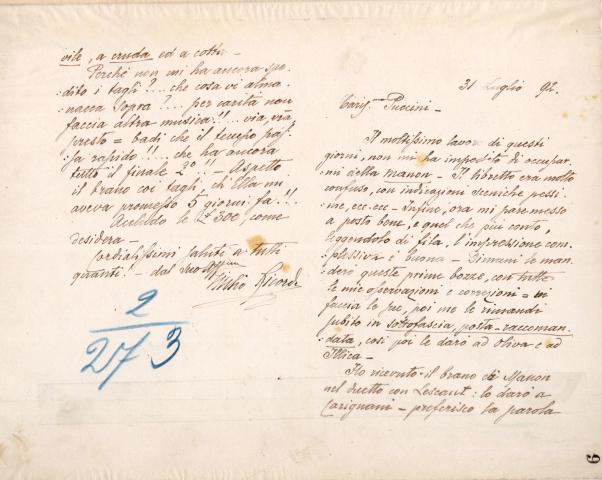 31 Luglio 92.
Carig.mo Puccini –
Il moltissimo lavoro di questi
giorni, non mi ha impedito di occupar
:mi della Manon – Il libretto era molto
confuso, con indicazioni sceniche pessi
:me, ecc. ecc – Infine, ora mi par messo
a posto bene, e quel che più conta,
leggendolo di fila, l'impressione com
:plessiva è buona – Dimani le man:
derò queste prime bozze, con tutte
le mie osservazioni e correzioni = vi
faccia le sue, poi me le rimandi
subito in sottofascia, posta-raccoman
:data, così poi le darò ad Oliva e ad
Illica –
Ho ricevuto il brano di Manon
nel duetto con Lescaut: lo darò a
Carignani – preferisco la parola
vile, a cruda ed a cotta –
Perché non mi ha ancora spe
:dito i tagli?... che cosa vi alma
:nacca sopra?... per carità non
faccia altra musica!!.. via, via,
presto = badi che il tempo pas
:sa rapido!!... che ha ancora
tutto il finale 2°!! – Aspetto
il brano coi tagli, ch'Ella mi
aveva promesso 5 giorni fa!!
Accludo le L. 300, come
desidera –
Cordialissimi saluti a tutti
quanti! – dal suo Aff.mo
Giulio Ricordi
2
27 3
6